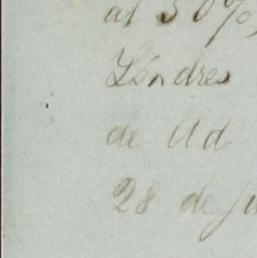 al 30%,
Lóndres
de Ud
28 de